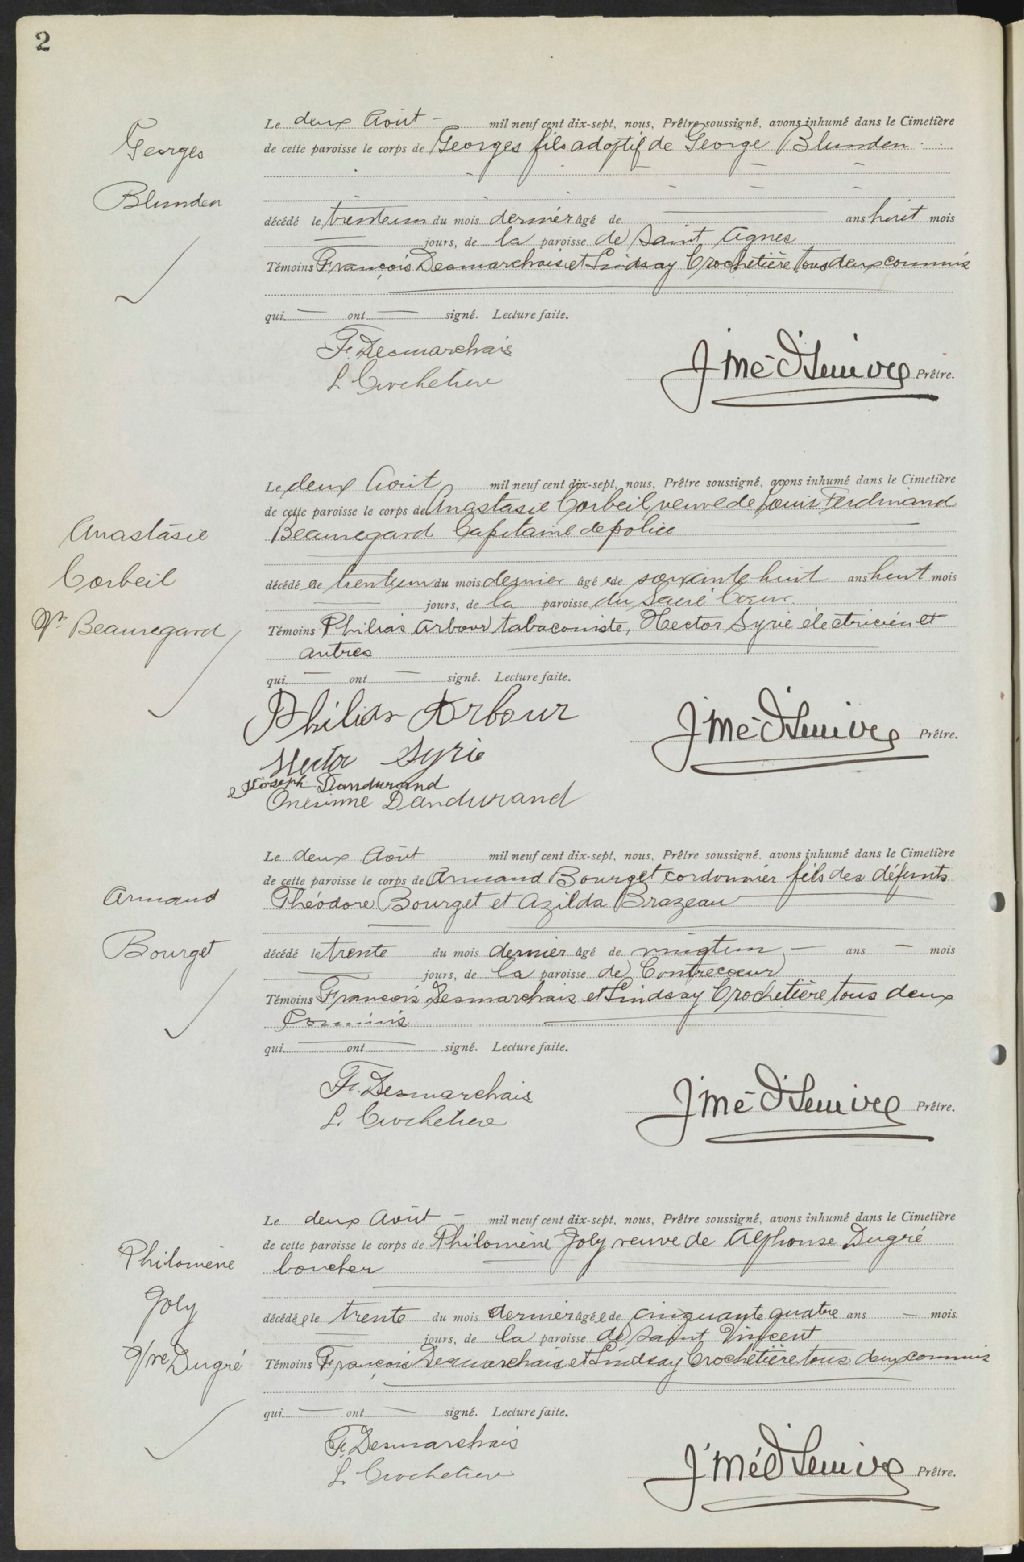 2
Georges
Blunden
Le deux Août — mil neuf cent dix-sept, nous, Prêtre soussigné, avons inhumé dans le Cimetière
de cette paroisse le corps de Georges fils adoptif de George Blunden
décédé le trenteun du mois dernier âgé de — ans huit mois
— jours, de la paroisse de Saint Agnes
Témoins François Desmarchais et Lindsay Crochetière tous deux commis
qui — ont — signé. Lecture faite.
F. Desmarchais
L. Crochetiere
Prêtre.
Anastasie
Corbeil
Vve Beauregard
Le deux Août mil neuf cent dix-sept, nous, Prêtre soussigné, avons inhumé dans le Cimetière
de cette paroisse le corps de Anastasie Corbeil veuve de Louis Ferdinand
Beauregard Capitaine de police
décédée le trenteun du mois dernier âgée de soixante huit ans huit mois
— jours, de la paroisse du Sacré Cœur
Témoins Philias Arbour tabaconiste, Hector Syrie électricien et
autres
qui — ont — signé. Lecture faite.
Philias Arbour
Hector Syrie
Joseph Dandurand
Onesimme Dandurand
Prêtre.
Armand
Bourget
Le deux Août mil neuf cent dix-sept, nous, Prêtre soussigné, avons inhumé dans le Cimetière
de cette paroisse le corps de Armand Bourget cordonnier fils des défunts
Théodore Bourget et Azilda Brazeau
décédé le trente du mois dernier âgé de vingtun ans — mois
— jours, de la paroisse de Contrecœur
Témoins François Desmarchais et Lindsay Crochetière tous deux
Commis
qui — ont — signé. Lecture faite.
F. Desmarchais
L. Crochetiere
Prêtre.
Philomène
Joly
Vve Dugré
Le deux Août — mil neuf cent dix-sept, nous, Prêtre soussigné, avons inhumé dans le Cimetière
de cette paroisse le corps de Philomène Joly veuve de Alphonse Dugré
boucher
décédée le trente du mois dernier âgée de cinquante quatre ans — mois
— jours, de la paroisse de Saint Vincent
Témoins François Desmarchais et Lindsay Crochetière tous deux commis
qui — ont — signé. Lecture faite.
F. Desmarchais
L. Crochetiere
Prêtre.